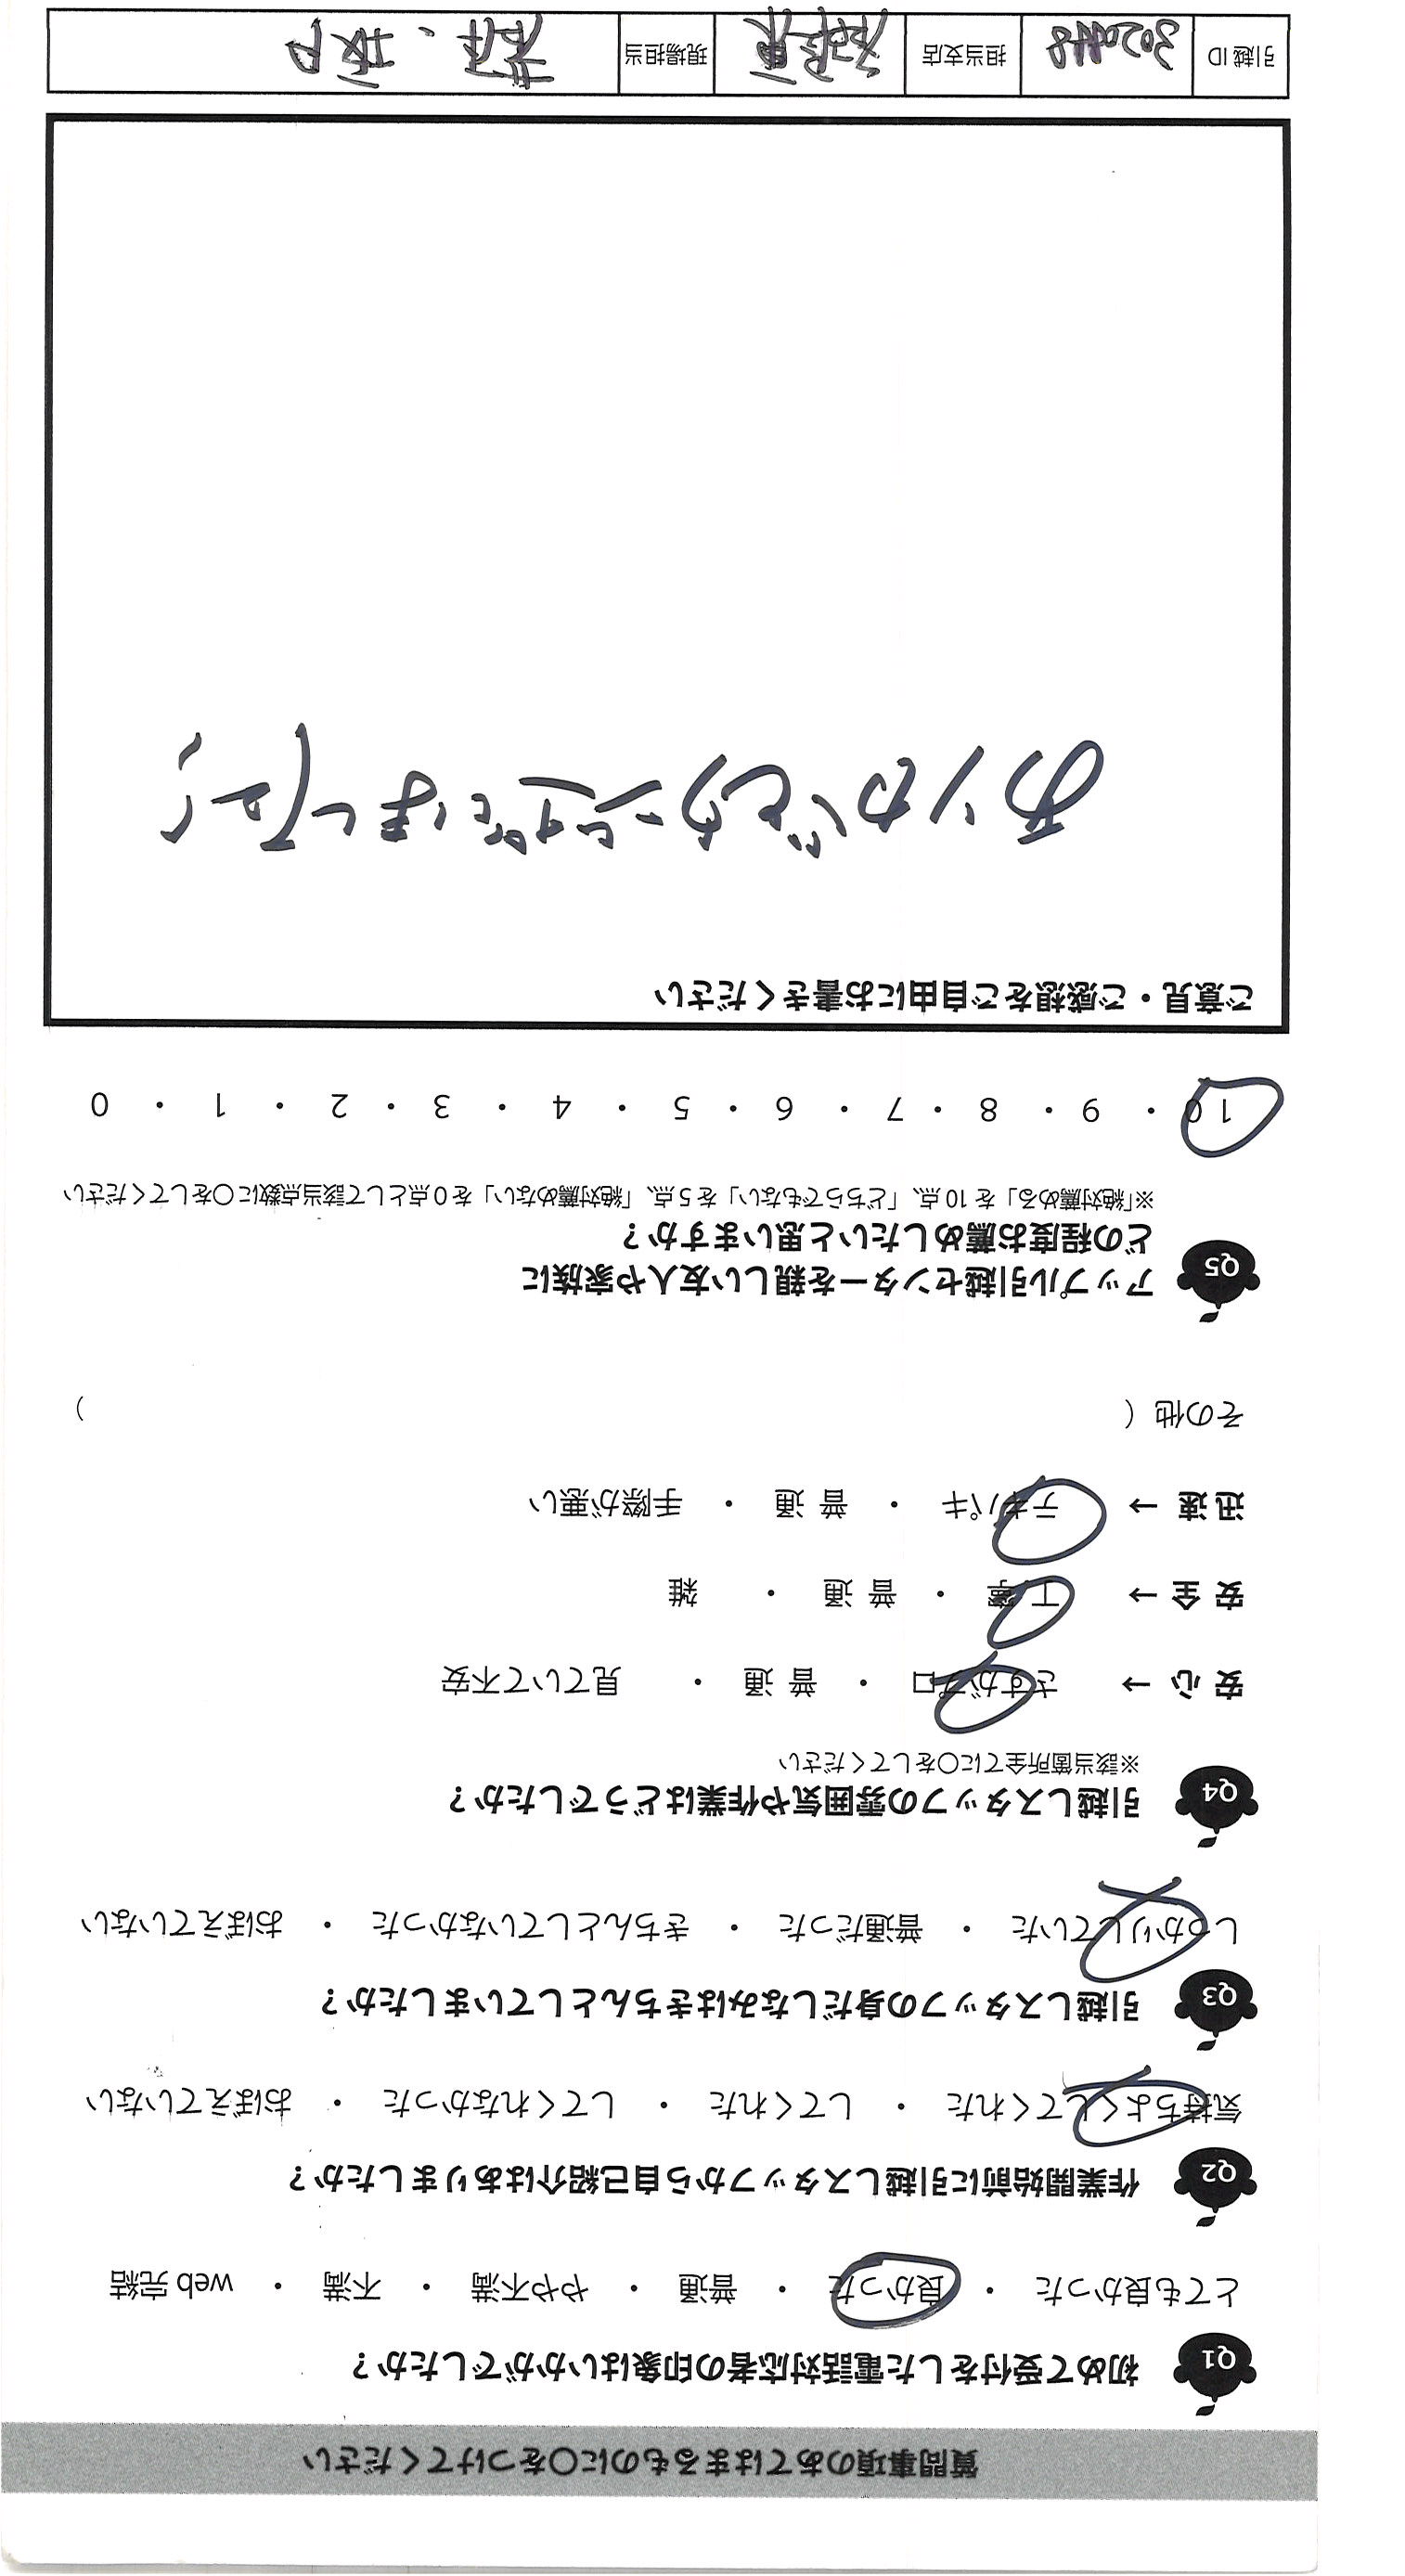 質問事項のあてはまるものに〇をつけてください
Q1 初めて受付をした電話対応者の印象はいかがでしたか？
とても良かった ・ 良かった ・ 普通 ・ やや不満 ・ 不満 ・ web 完結
Q2 作業開始前に引越しスタッフから自己紹介はありましたか？
気持ちよくしてくれた ・ してくれた ・ してくれなかった ・ おぼえていない
Q3 引越しスタッフの身だしなみはきちんとしていましたか？
しっかりしていた ・ 普通だった ・ きちんとしていなかった ・ おぼえていない
Q4 引越しスタッフの雰囲気や作業はどうでしたか？
※該当箇所全てに〇をしてください
安 心 → さすがプロ ・ 普 通 ・ 見ていて不安
安 全 → 丁 寧 ・ 普 通 ・ 雑
迅 速 → テキパキ ・ 普 通 ・ 手際が悪い
その他（ ）
Q5 アップル引越センターを親しい友人や家族に
どの程度お薦めしたいと思いますか？
※「絶対薦める」を 10 点、「どちらでもない」を 5 点、「絶対薦めない」を 0 点として該当点数に〇をしてください
10 ・ 9 ・ 8 ・ 7 ・ 6 ・ 5 ・ 4 ・ 3 ・ 2 ・ 1 ・ 0
ご意見・ご感想をご自由にお書きください
ありがとうございました!
引越 ID 担当支店 現場担当